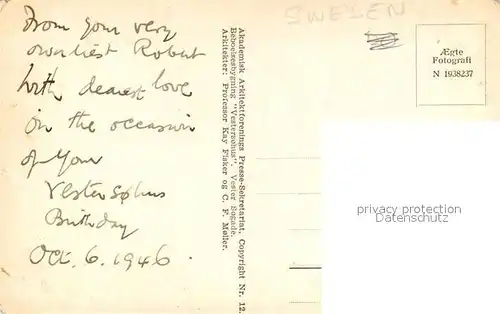 From your very
ownliest Robert
With dearest love
on the occasion
of your
Vestersøhus
Birthday
Oct. 6. 1946.
Akademisk Arkitektforenings Presse-Sekretariat, Copyright Nr. 12.
Beboelsesbygning "Vestersøhus". Vester Søgade.
Arkitekter: Professor Kay Fisker og C. F. Møller.
SWEDEN
Ægte
Fotografi
N 1938237
privacy protection
Datenschutz